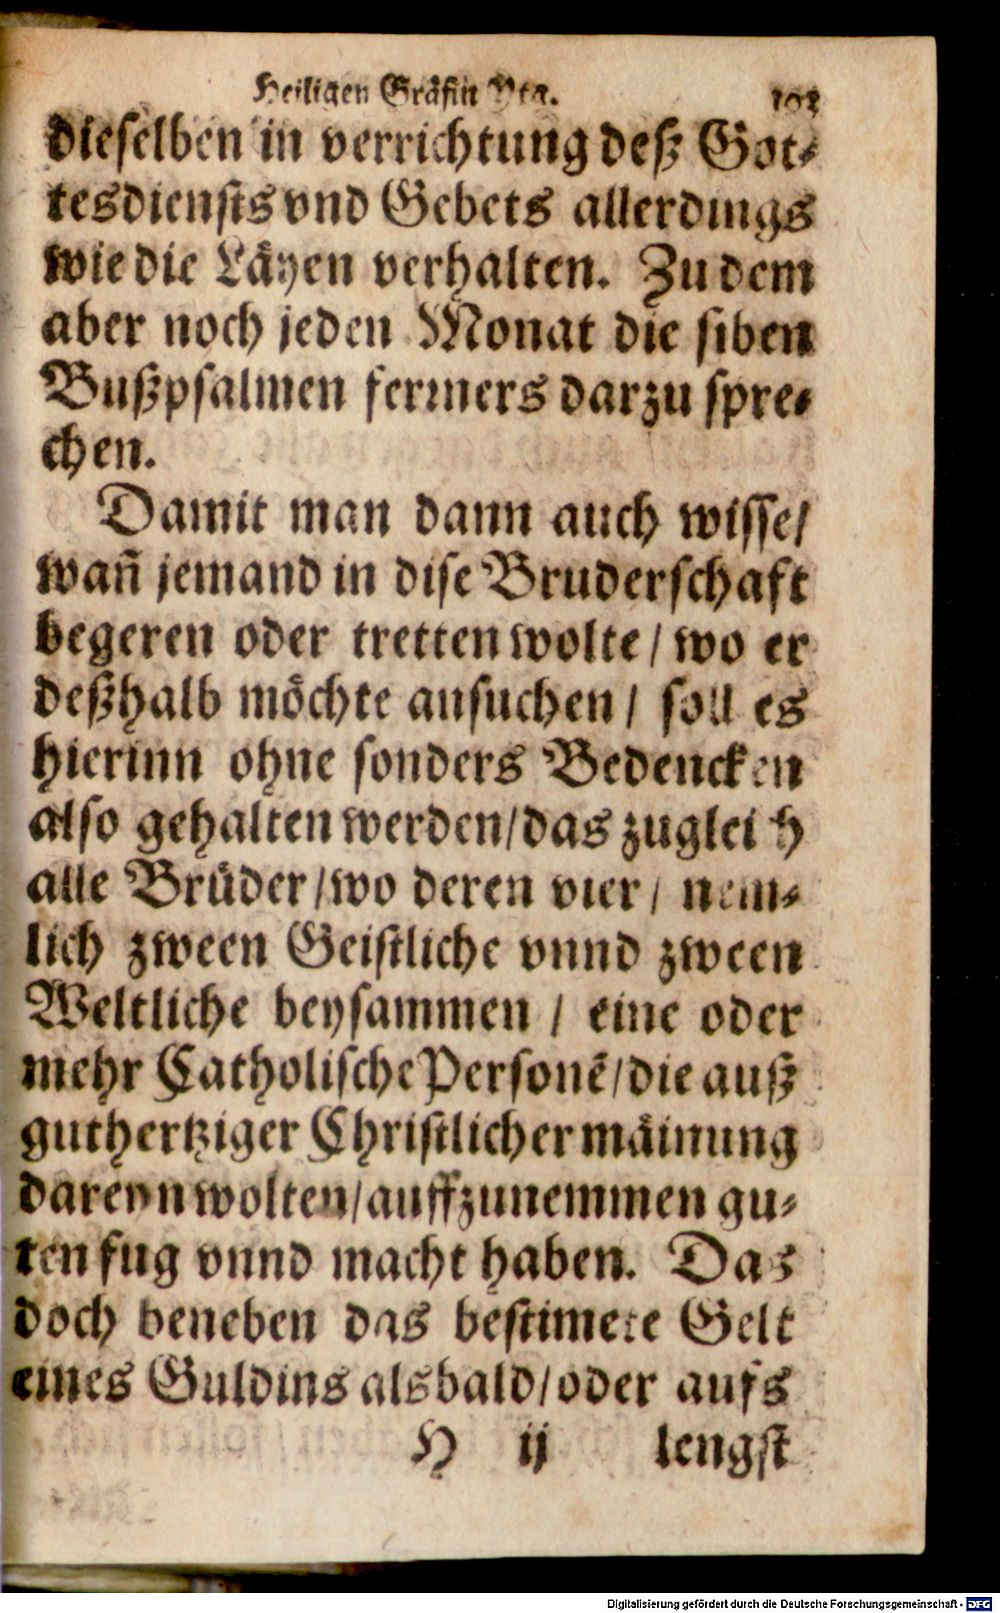 Heiligen Gräfin Yta.
dieselben in verrichtung deß Got-
tesdiensts vnd Gebets allerdings
wie die Läyen verhalten. Zu dem
aber noch jeden Monat die siben
Bußpsalmen ferrners darzu spre-
chen.
Damit man dann auch wisse/
wañ jemand in dise Bruderschaft
begeren oder tretten wolte / wo er
deßhalb möchte ansuchen / soll es
hierinn ohne sonders Bedencken
also gehalten werden/das zugleich
alle Brüder/wo deren vier / nem-
lich zween Geistliche vnnd zween
Weltliche beysammen / eine oder
mehr Catholische Personē/die auß
guthertziger Christlicher mäinung
dareyn wolten/auffzunemmen gu-
ten fug vnnd macht haben. Das
doch beneben das bestimete Gelt
eines Guldins alsbald/oder aufs
H ij lengst
Digitalisierung gefördert durch die Deutsche Forschungsgemeinschaft - DFG